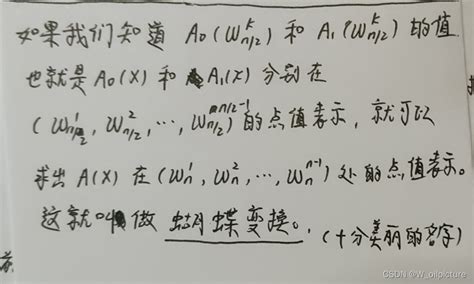 如果我们知道 A₀(ωᵏₙ/₂) 和 A₁(ωᵏₙ/₂) 的值
也就是 A₀(x) 和 A₁(x) 分别在
(ω¹ₙ/₂, ω²ₙ/₂, ..., ωⁿ/²⁻¹ₙ/₂) 的点值表示, 就可以
求出 A(x) 在 (ω¹ₙ, ω²ₙ, ..., ωⁿ⁻¹ₙ) 处的点值表示。
这就叫做 蝴蝶变换。, (十分美丽的名字)
CSDN @W_oilpicture